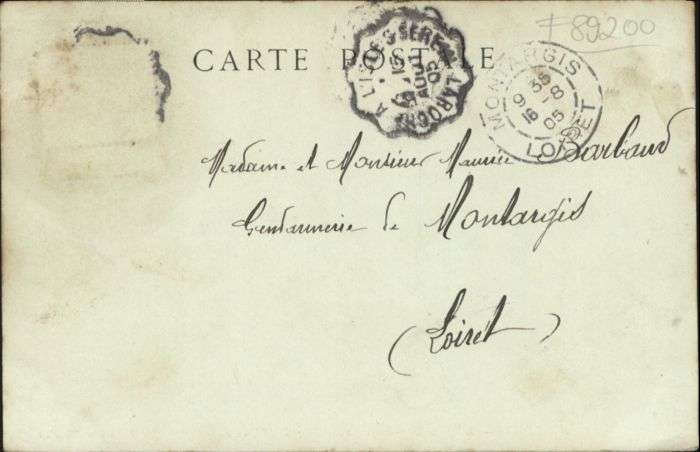 F89200
CARTE POSTALE
MONTARGIS
9 35
16 -8
05
LOIRET
AOUT
05
Madame et Monsieur Maurice Barbaud
Gendarmerie de Montargis
(Loiret)